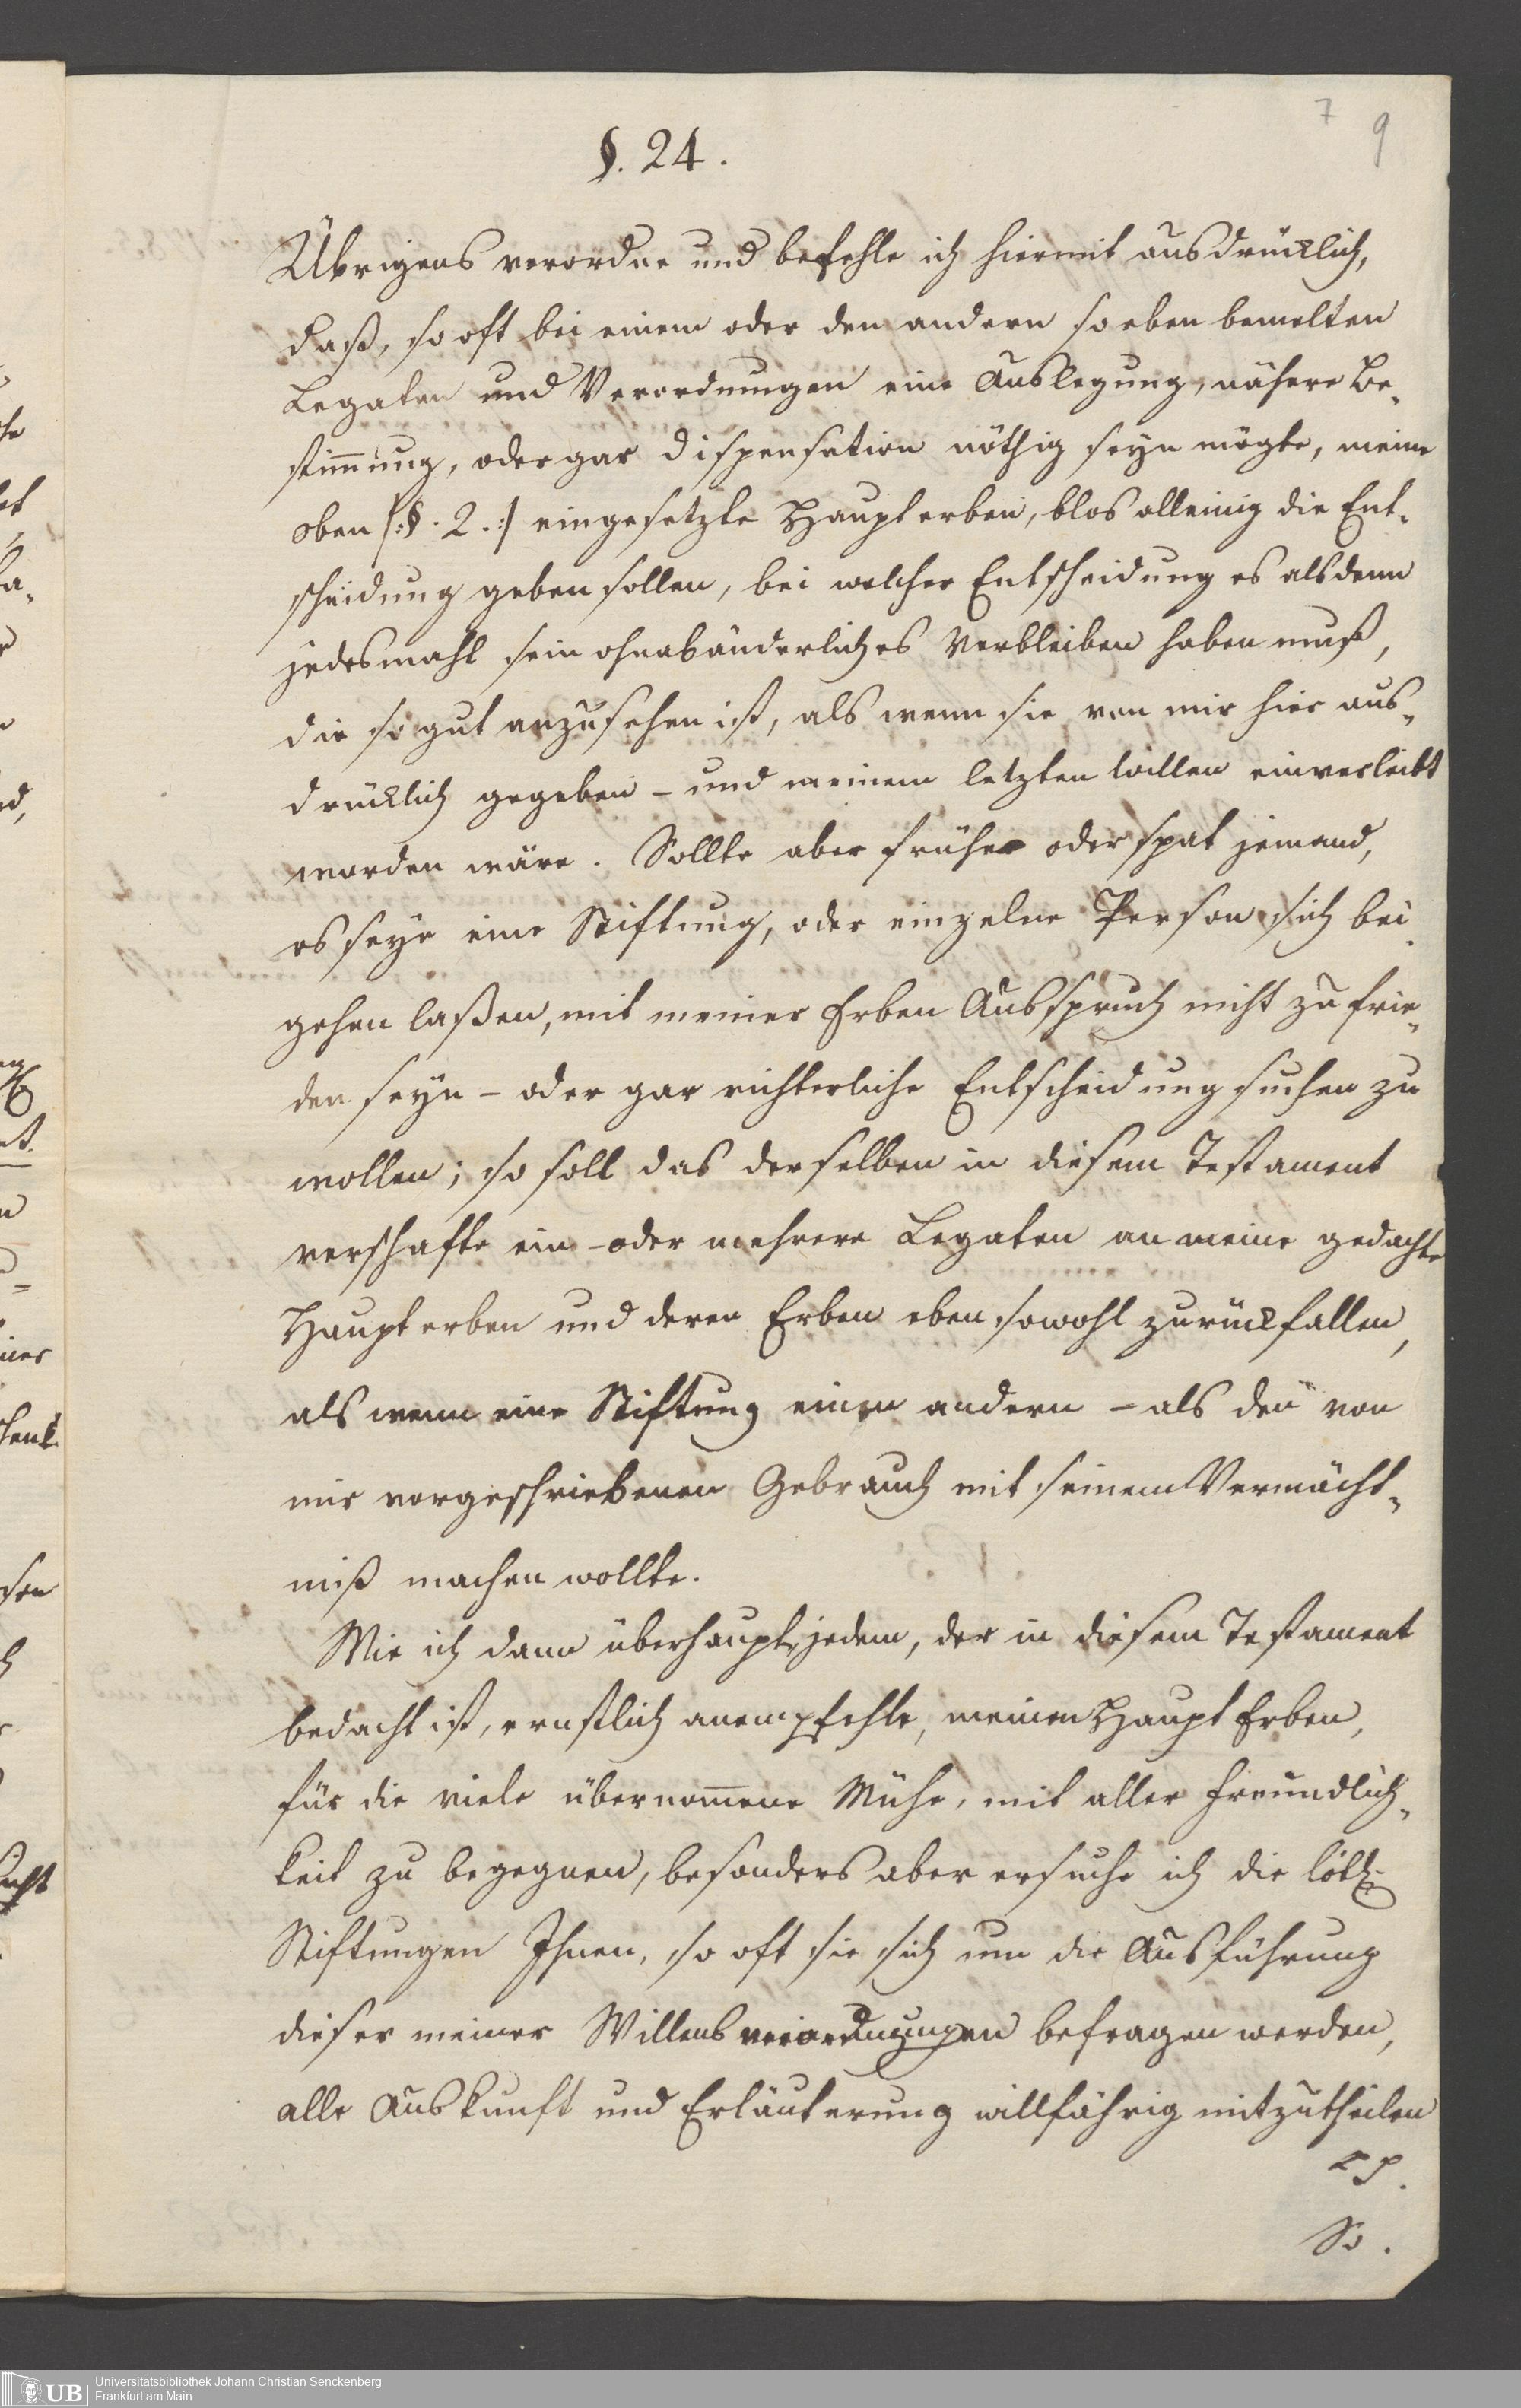 7 9
§. 24.
Übrigens verordne und befehle ich hiermit ausdrücklich,
daß, so oft bei einem oder den andern so eben bemelten
Legaten und Verordnungen eine Auslegung, nähere Be-
stim̅ung, oder gar Dispensation nöthig seyn mögte, meine
oben /:§. 2.:/ eingesetzte Haupterben, blos alleinig die Ent-
scheidung geben sollen, bei welcher Entscheidung es alsdenn
jedesmahl sein ohnabänderliches Verbleiben haben muß,
die so gut anzusehen ist, als wenn sie von mir hier aus-
drücklich gegeben - und meinem letzten Willen einverleibt
worden wäre. Sollte aber früher oder spat jemand,
es seye eine Stiftung, oder einzelne Person sich bei-
gehen laßen, mit meiner Erben Ausspruch nicht zu frie-
den seyn - oder gar richterliche Entscheidung suchen zu
wollen; so soll das derselben in diesem Testament
verschafte ein - oder mehrere Legaten an meine gedachte
Haupterben und deren Erben eben sowohl zurückfallen,
als wenn eine Stiftung einen andern - als den von
mir vorgeschriebenen Gebrauch mit seinem Vermächt-
niß machen wollte.
Wie ich dann überhaupt jedem, der in diesem Testament
bedacht ist, ernstlich anempfehle, meinen Haupt Erben,
für die viele übernom̅ene Mühe, mit aller Freundlich-
keit zu begegnen, besonders aber ersuche ich die löbl.
Stiftungen Ihnen, so oft sie sich um die Ausführung
dieser meiner Willensverordnungen befragen werden,
alle Auskunft und Erläuterung willfährig mitzutheilen
So.
UB Universitätsbibliothek Johann Christian Senckenberg
Frankfurt am Main